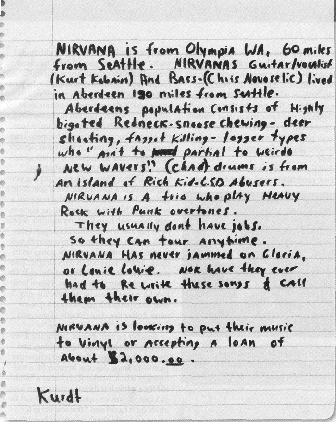 NIRVANA is from Olympia WA, 60 miles
from Seattle. NIRVANAS Guitar/vocalist
(Kurt Kobain) And Bass-(Chris Novoselic) lived
in Aberdeen 190 miles from Seattle.
Aberdeens population consists of Highly
bigoted Redneck-snoose chewing-deer
shooting, faggot killing-logger types
who "ain't to partial to weirdo
NEW WAVERS!!" (chad) drums is from
an island of Rich Kid-LSD Abusers.
NIRVANA is A trio who play HEAVY
Rock with Punk overtones.
They usually dont have jobs.
So they can tour anytime.
NIRVANA HAS never jammed on Gloria,
or Louie Louie. Nor have they ever
had to Re write these songs & call
them their own.
NIRVANA is looking to put their music
to vinyl or accepting A loan of
about $2,000.00.
Kurdt